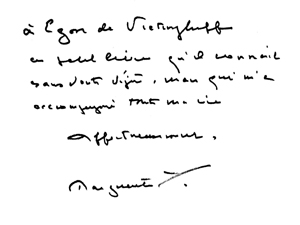 à Egon de Vietinghoff
ce petit livre qu'il connait
sans doute déjà, mais qui m'a
accompagné toute ma vie
Affectueusement.
Marguerite Y.